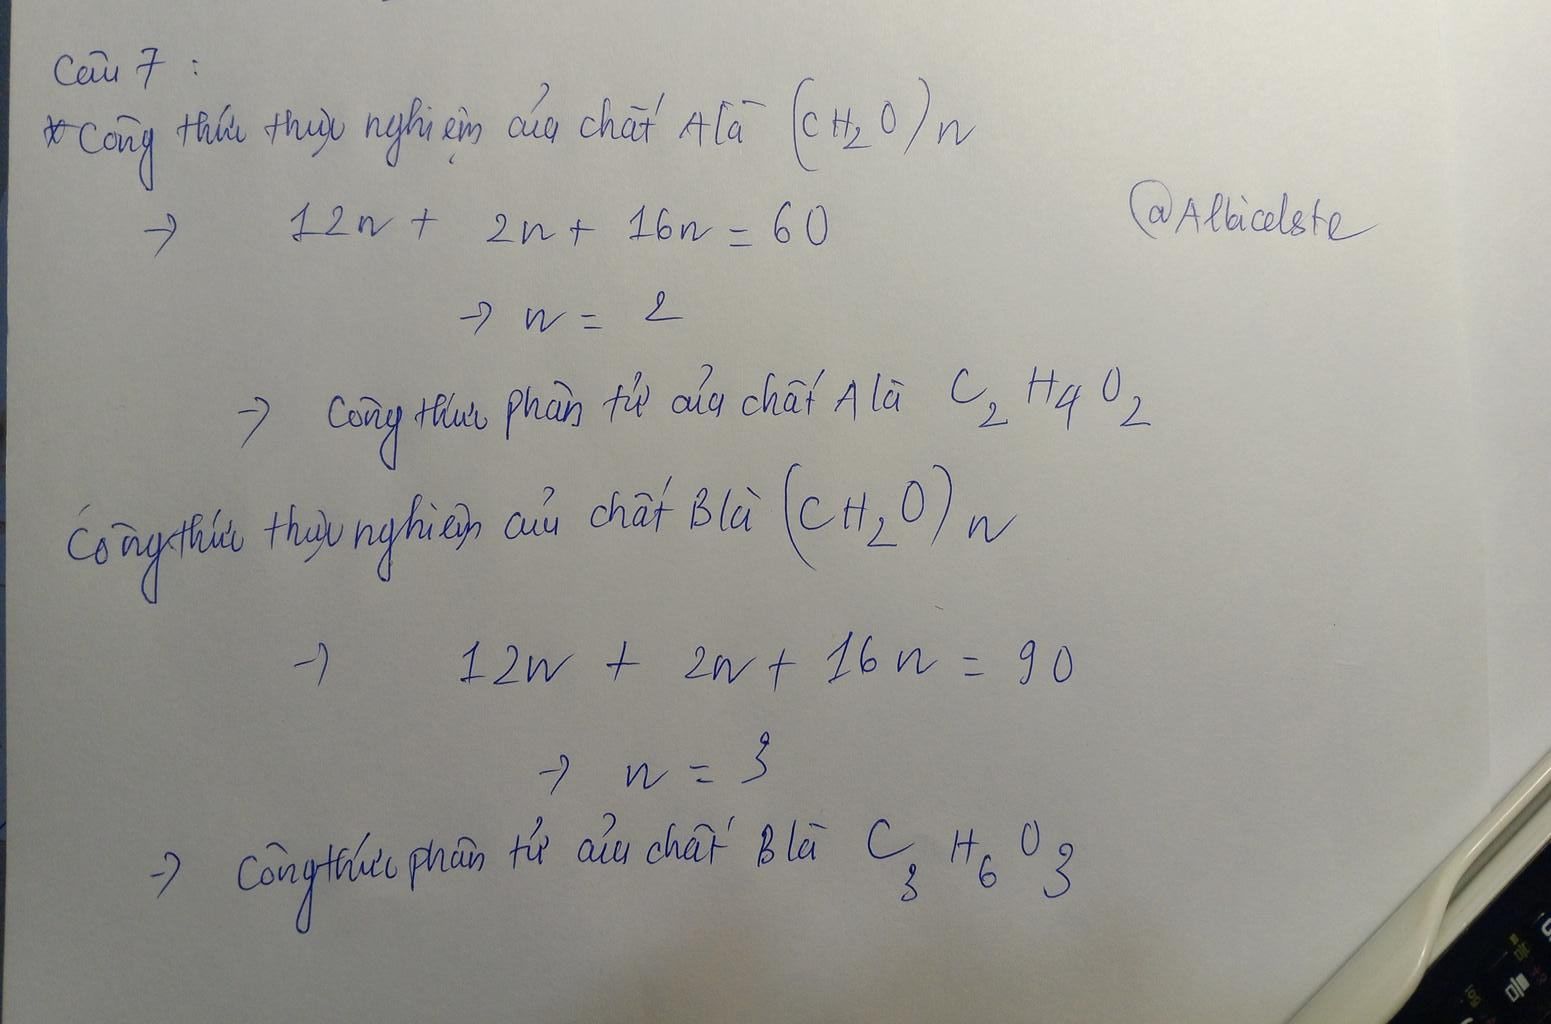 Câu 7 :
* Công thức thực nghiệm của chất A là (CH₂O)n
→ 12n + 2n + 16n = 60
@Albiceleste
→ n = 2
→ Công thức phân tử của chất A là C₂H₄O₂
Công thức thực nghiệm của chất B là (CH₂O)n
→ 12n + 2n + 16n = 90
→ n = 3
→ Công thức phân tử của chất B là C₃H₆O₃